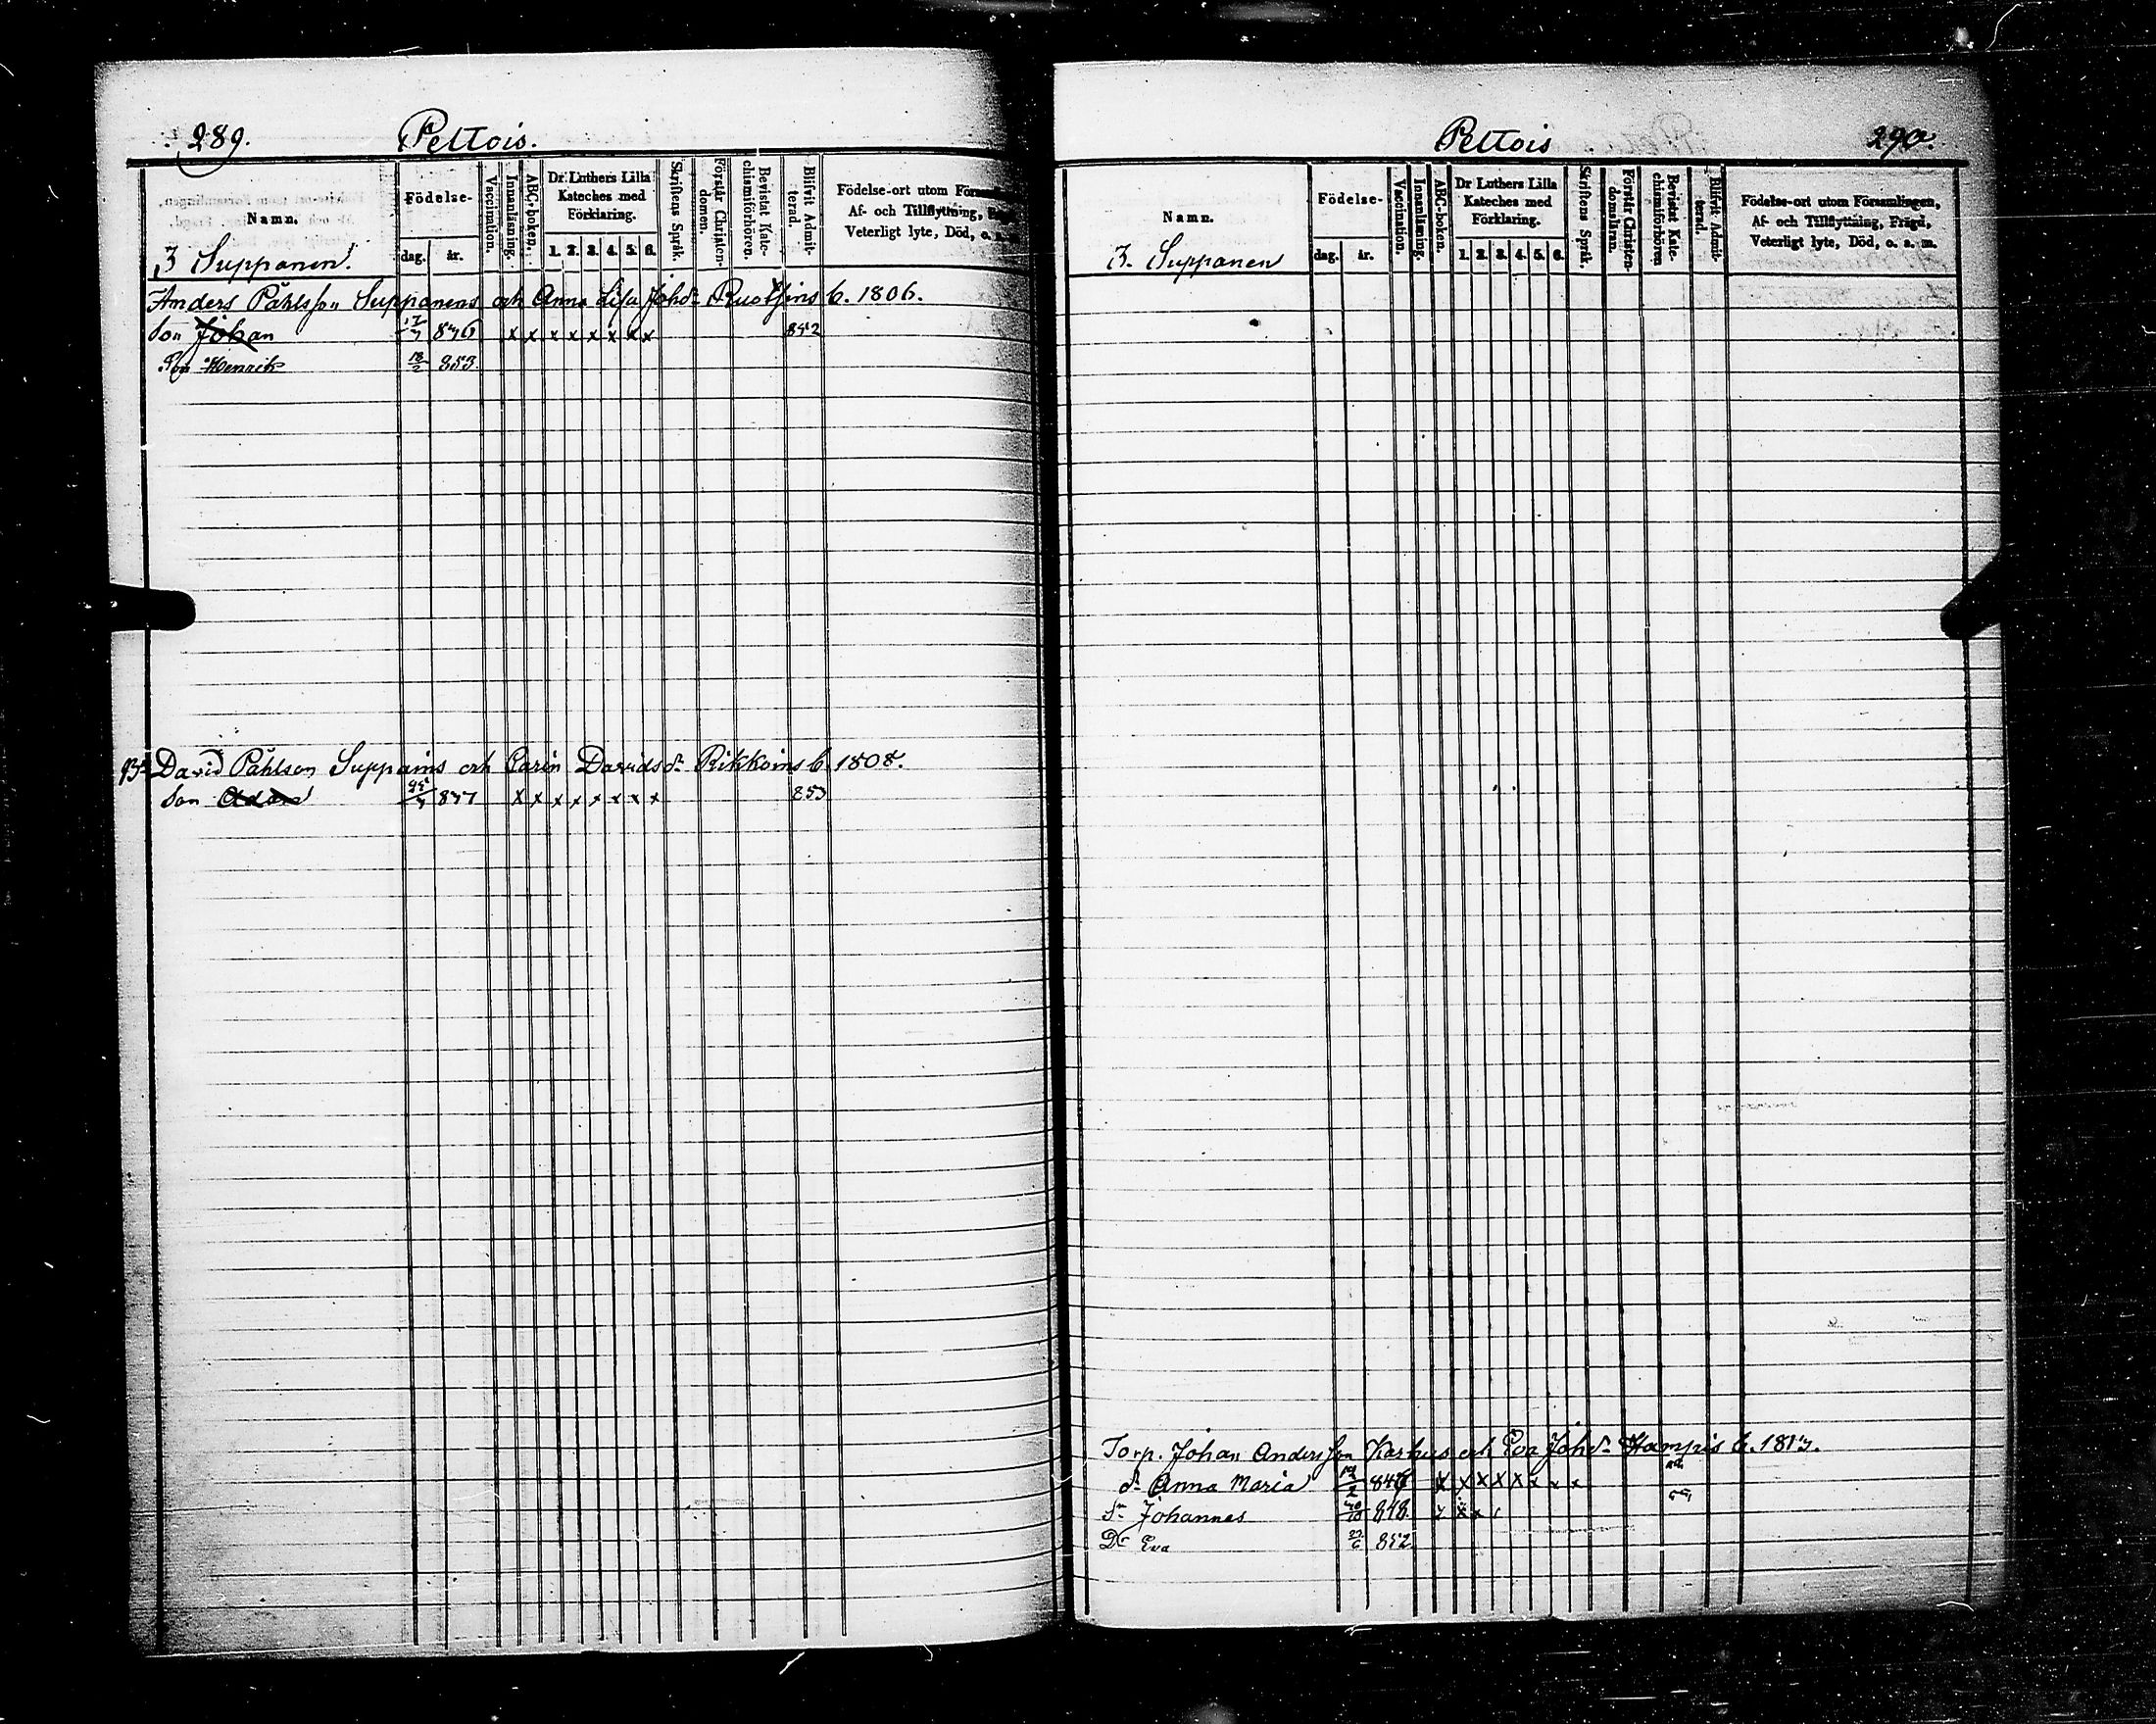 289. Pettois.
Namn.
Födelse-
dag. år.
Vaccination.
Innanläsning.
ABC-boken.
Dr Luthers Lilla Kateches med Förklaring.
1. 2. 3. 4. 5. 6.
Skriftens Språk.
Förstår Christendomen.
Bevistat Katechismiförhören.
Blifvit Admitterad.
Födelse-ort utom
Af- och Tillflyttning,
Veterligt lyte, Död, o. a. m.
3 Suppanen.
Anders Påhlsson Suppanens och Anna Lisa Johd. b. 1806.
Son Johan x x x x x x x x 852
Son Henrik 18/2 853
David Påhlson Suppains och Carin Davidsd. Rikkoins b. 1808.
Son Adam x x x x x x x x 853
Pettois 290.
Namn.
Födelse-
dag. år.
Vaccination.
Innanläsning.
ABC-boken.
Dr Luthers Lilla Kateches med Förklaring.
1. 2. 3. 4. 5. 6.
Skriftens Språk.
Förstår Christendomsläran.
Bevistat Katechismiförhören
Blifvit Admitterad.
Födelse-ort utom Församlingen,
Af- och Tillflyttning, Frägd,
Veterligt lyte, Död, o. a. m.
3. Suppanen
Torp. Johan Andersson Karhus och Eva Johd.
d. Anna Maria x x x x x x x x
Sn Johannes 848.
Dr Eva 852